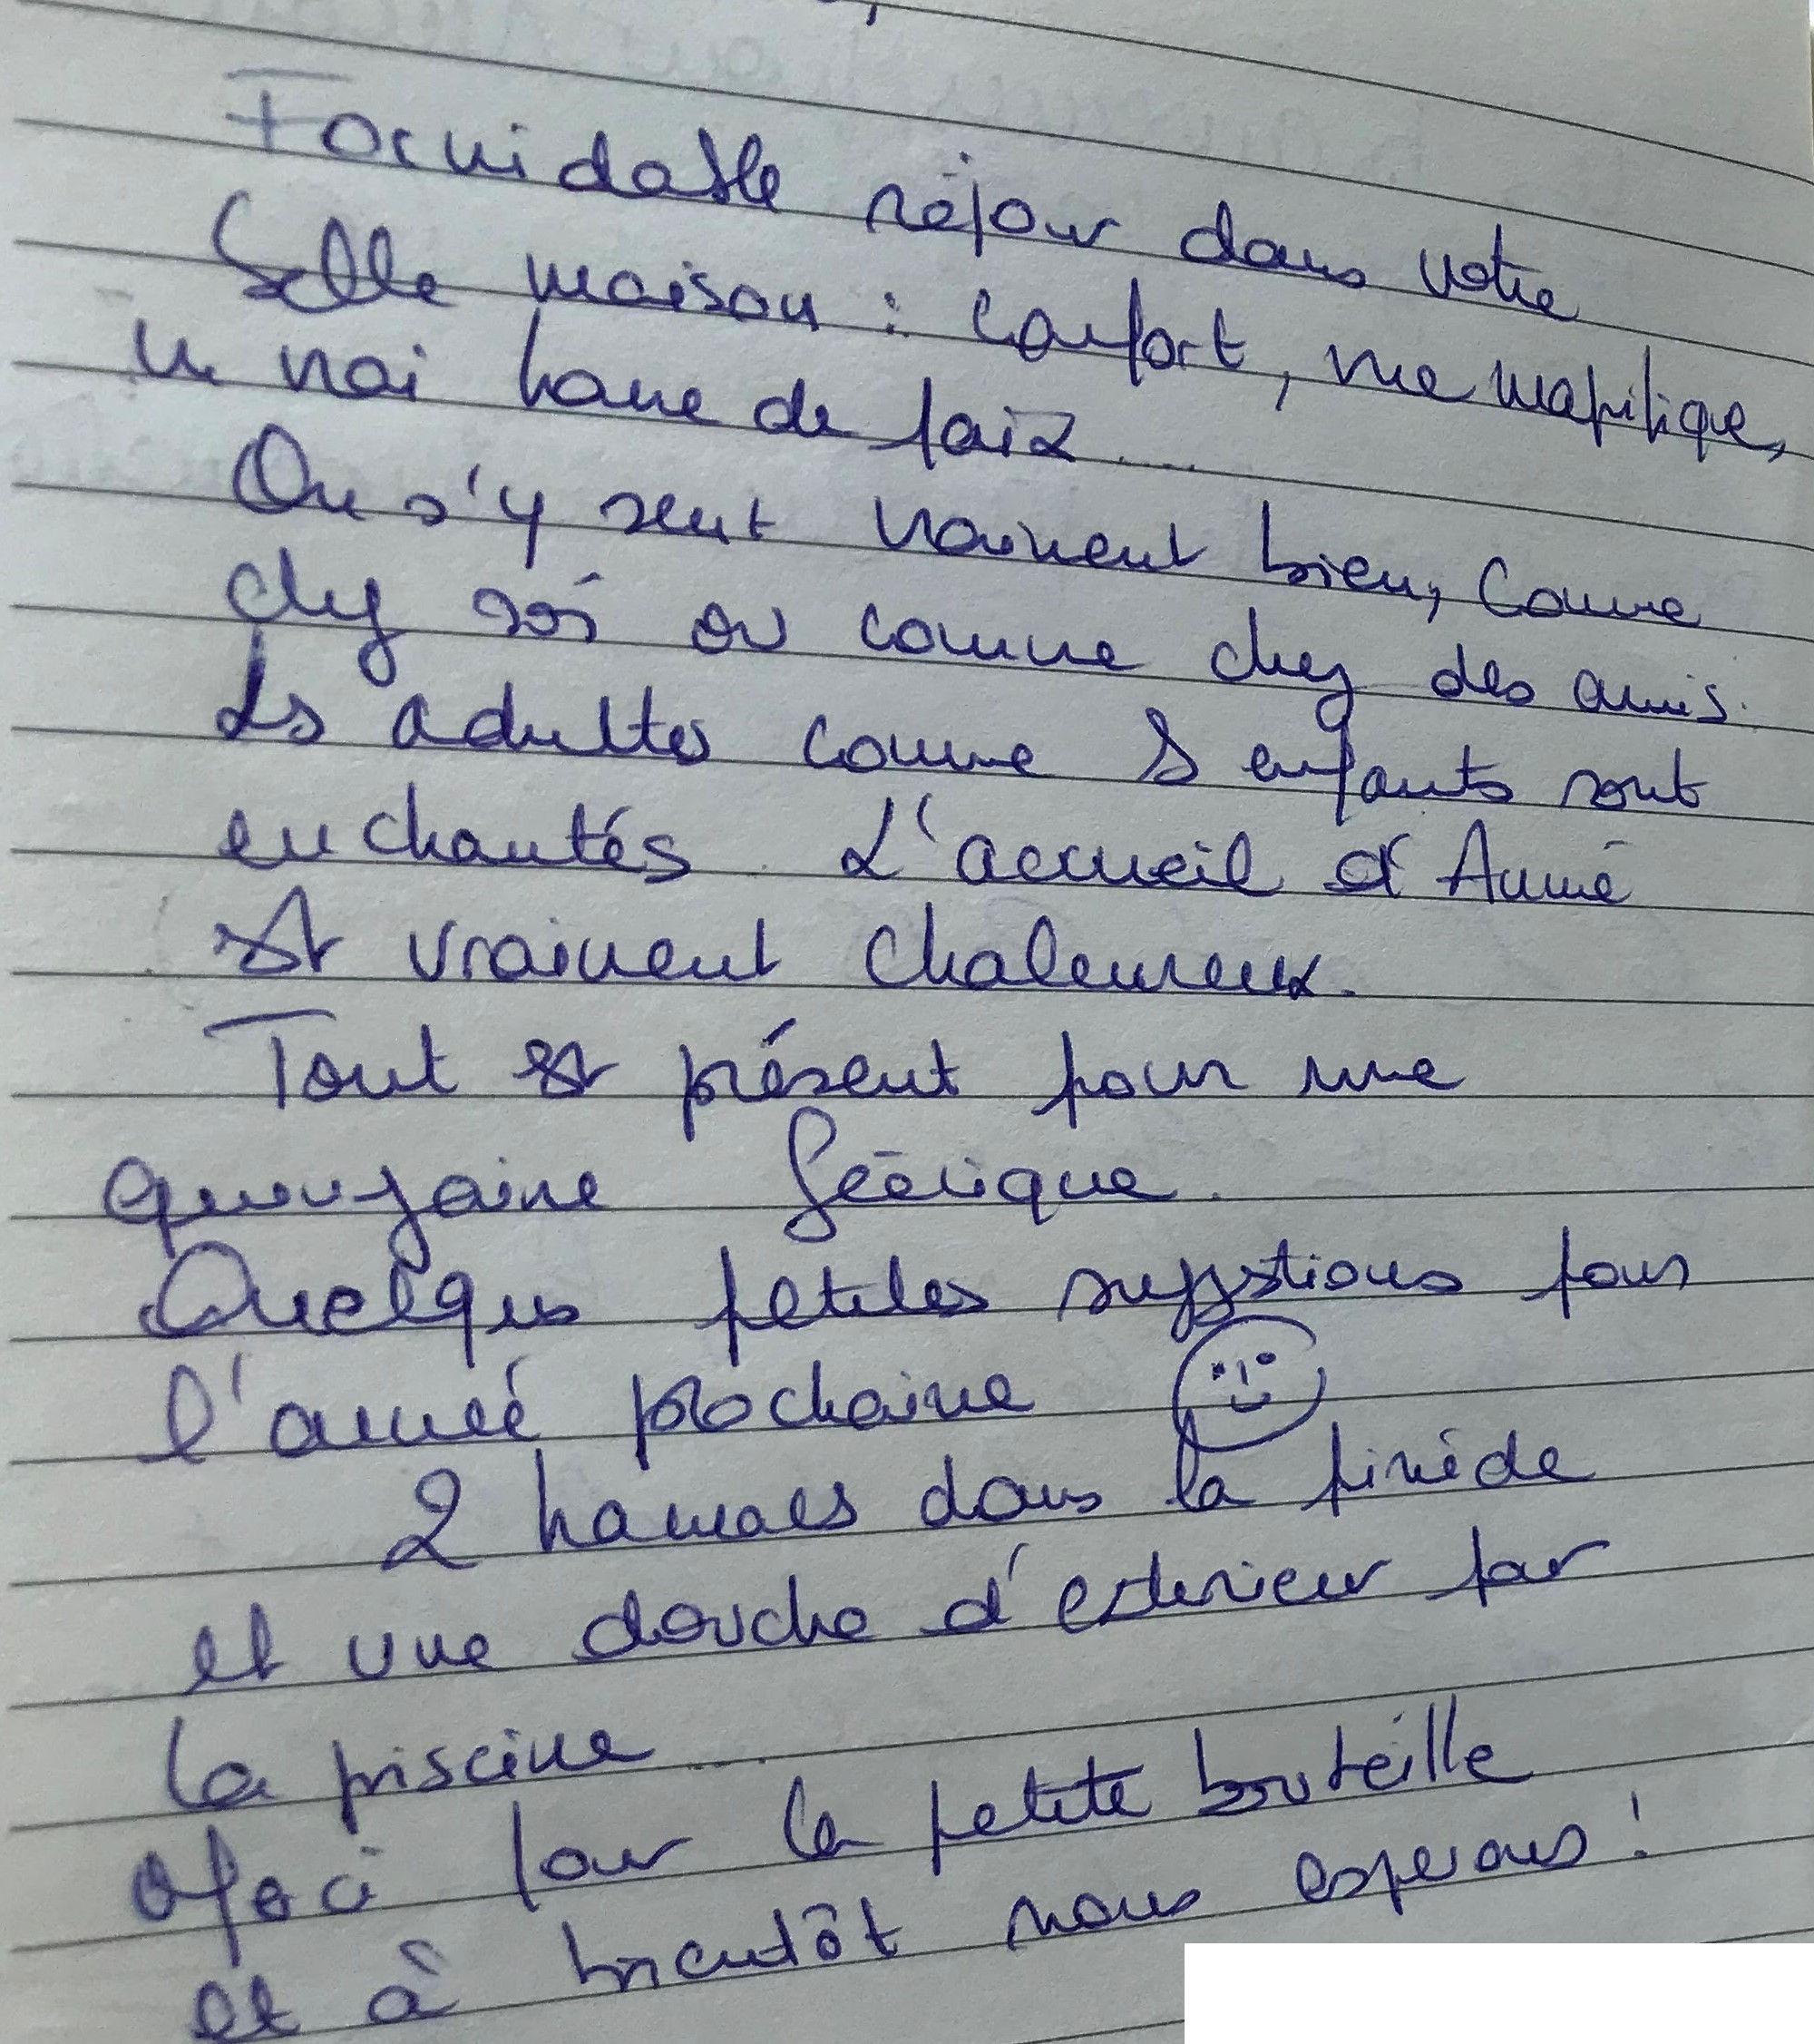 Formidable séjour dans votre
belle maison : confort, vue magnifique,
un vrai havre de paix ....
On s'y sent vraiment bien, comme
chez soi ou comme chez des amis.
Les adultes comme les enfants sont
enchantés. L'accueil d'Aimé
est vraiment chaleureux.
Tout est présent pour une
quinzaine féérique.
Quelques petites suggestions pour
l'année prochaine
2 hamacs dans la pinède
et une douche d'exterieur par
la piscine ....
Merci pour la petite bouteille
et à bientôt nous esperons !